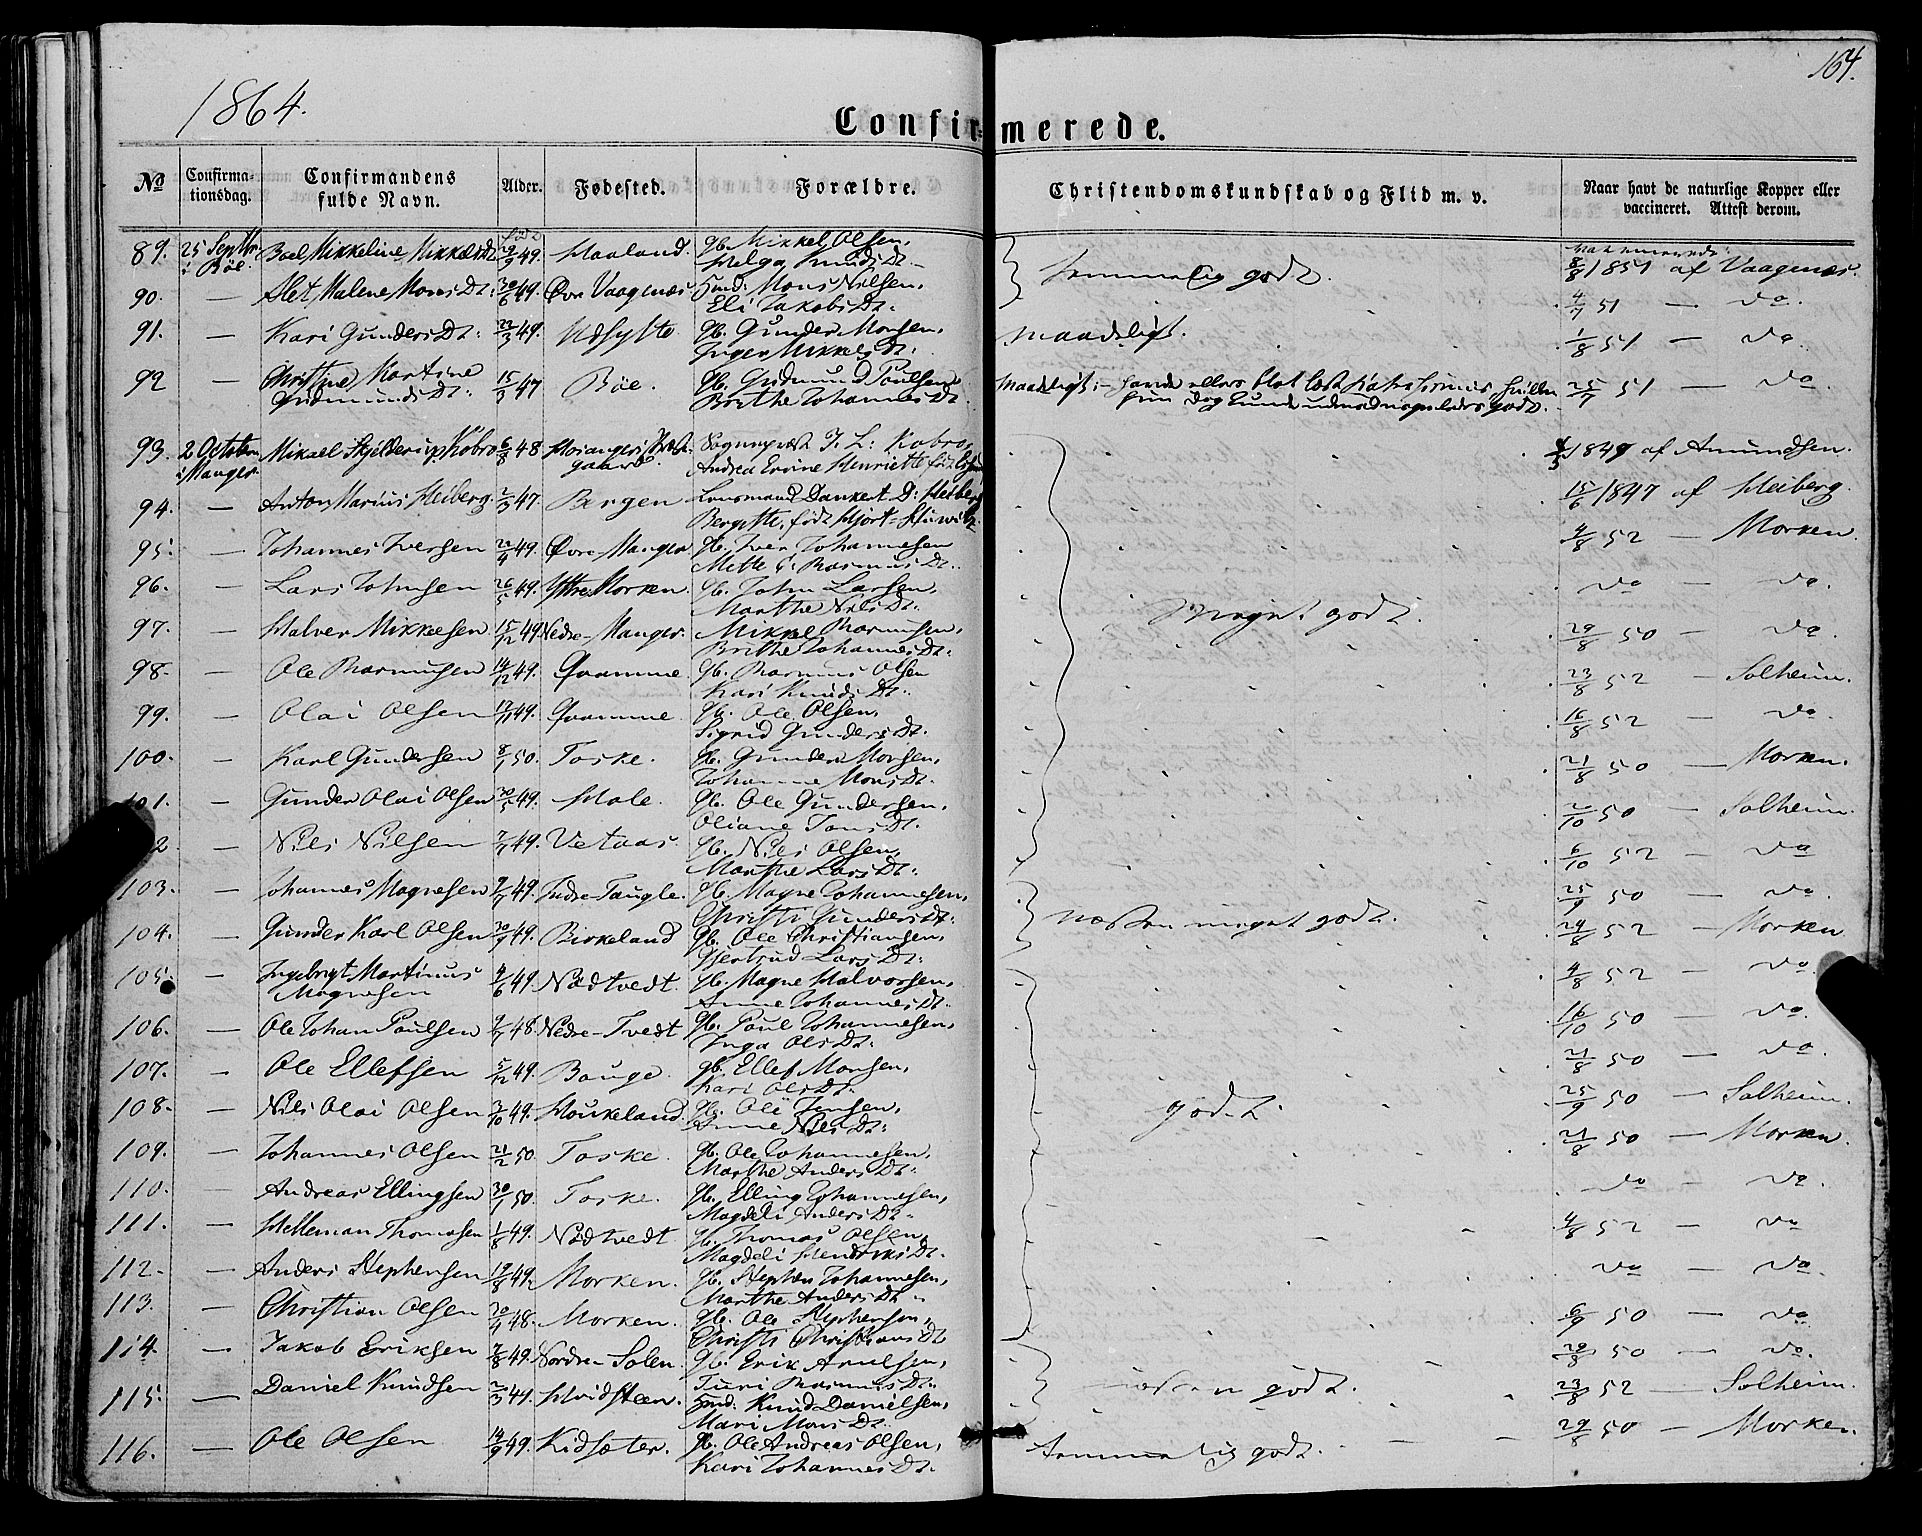 1864.
164.
Confirmerede.
No
Confirmationsdag.
Confirmandens fulde Navn.
Alder.
Fødested.
Forældre.
Christendomskundskab og Flid m. v.
Naar havt de naturlige Kopper eller vaccineret. Attest derom.
89. 25 Septbr i Bøe. Boel Mikkeline Mikkelsdt født 29/3 49. Haaland. Gb. Mikkel Olsen, Helga Knudsdt. temmelig godt. vaccinerede 8/8 1851 af Vaagenæs.
90. — Alet Malene Monsdt: 30/6 49. Øvre Vaagenæs Huusmd: Mons Nilsen, Eli Jakobsdt: 4/7 51 — do.
91. — Kari Gundersdt: 23/3 49. Gb. Gunder Monsen, Inger Mikkelsdt: maadeligt. 1/8 51 — do
92 — Christine Martine Gudmundsdt: 15/3 47 Bøe. Gb. Gudmund Poulsen Brithe Johannesdt. Maadeligt: 25/7 51 — do.
93. 2 October i Manger Mikael Skjelderup Kobro 6/8 48 Sognepræst J. L: Kobro, 1849 af Amundsen.
94. — Anton Marius Heiberg. 2/3 47. Bergen Lensmand Dankert D: Heiberg Bergitte, født Hjort 15/6 1847 af Heiberg.
95. — Johannes Iversen 22/9 49. Øvre Manger. Gb. Iver Johannesen Mette C: Rasmusdt. 4/8 52 — Morken.
96. — Lars Johnsen 26/5 49. Yttre Morken. Gb. John Larsen, Marthe Nilsdt: do — do.
97. — Halver Mikkelsen 15/12 49 Nedre-Manger. Mikkel Rasmusen, Brithe Johannesdt: Meget godt. 29/8 50 — do.
98. — Ole Rasmusen 14/12 49. Qvamme. Gb. Rasmus Olsen Kari Knudsdt: 23/8 52 — Solheim.
99. — Olai Olsen 13/11 49. Qvamme. Gb. Ole Olsen, Sigrid Gundersdt. 16/8 52 — do.
100. — Karl Gundersen 8/1 50. Toske. Gb. Gunder Monsen, Johanne Monsdt. 21/8 50 — Morken.
101. — Gunder Olai Olsen 30/5 49. Hole. Gb. Ole Gundersen, Oliane Jonsdt. 2/10 50 — Solheim.
2 — Nils Nilsen 7/7 49. Vetaas. Gb. Nils Olsen, Marthe Larsdt: 6/10 52 — do
103. — Johannes Magnesen 9/7 49. Indre-Taugle. Gb. Magne Johannesen, Christi Gundersdt: næsten meget godt. 25/9 50 — do.
104. — Gunder Karl Olsen 30/9 49. Birkeland Gb. Ole Christiansen, Gjertrud Larsdt: 24/8 52 — Morken.
105. — Ingebrigt Martinus Magnesen 4/6 49. Nødtvedt. Gb. Magne Halvorsen, Anne Johannesdt. 4/8 52 — do
106. — Ole Johan Poulsen 9/7 48. Nedre-Tvedt Gb. Poul Johannesen, Inga Olsdt: 16/10 50 — do.
107. — Ole Ellefsen 5/12 49. Bauge. Gb. Ellef Monsen, Kari Olsdt. 21/8 50 — do.
108. — Nils Olai Olsen 3/10 49. Houkeland. Gb. Ole Jensen, Anne Nilsdt: godt. 25/9 50 — Solheim.
109. — Johannes Olsen 21/2 50. Toske. Gb. Ole Johannesen, Marthe Andersdt: 21/8 50 — Morken.
110. — Andreas Ellingsen 30/1 50. Toske. Gb. Elling Johannesen, Magdeli Andersdt. do — do.
111. — Helleman Thomasen 1/8 49. Nødtvedt Gb. Thomas Olsen, Magdeli Hendriksdt. 4/8 52 — do
112. — Anders Stephensen 19/8 49. Morken. Gb. Stephen Johannesen, Marthe Andersdt. do — do.
113. — Christian Olsen 20/4 48. Morken. Gb. Ole Stephensen, Christi Christiansdt 6/9 50 — do
114. — Jakob Eriksen 7/8 49. Nordre-Solen. Gb. Erik Arnesen, Turi Rasmusdt: 20/8 50 — do.
115. — Daniel Knudsen 2/3 49. Hvidsteen. Huusmd. Knud Danielsen, Mari Monsdt. næsten godt. 23/8 52 — Solheim.
116. — Ole Olsen 14/9 49. Kidsæter. Gb. Ole Andreas Olsen, Kari Johannesdt. temmelig godt. 29/8 50 — Morken.